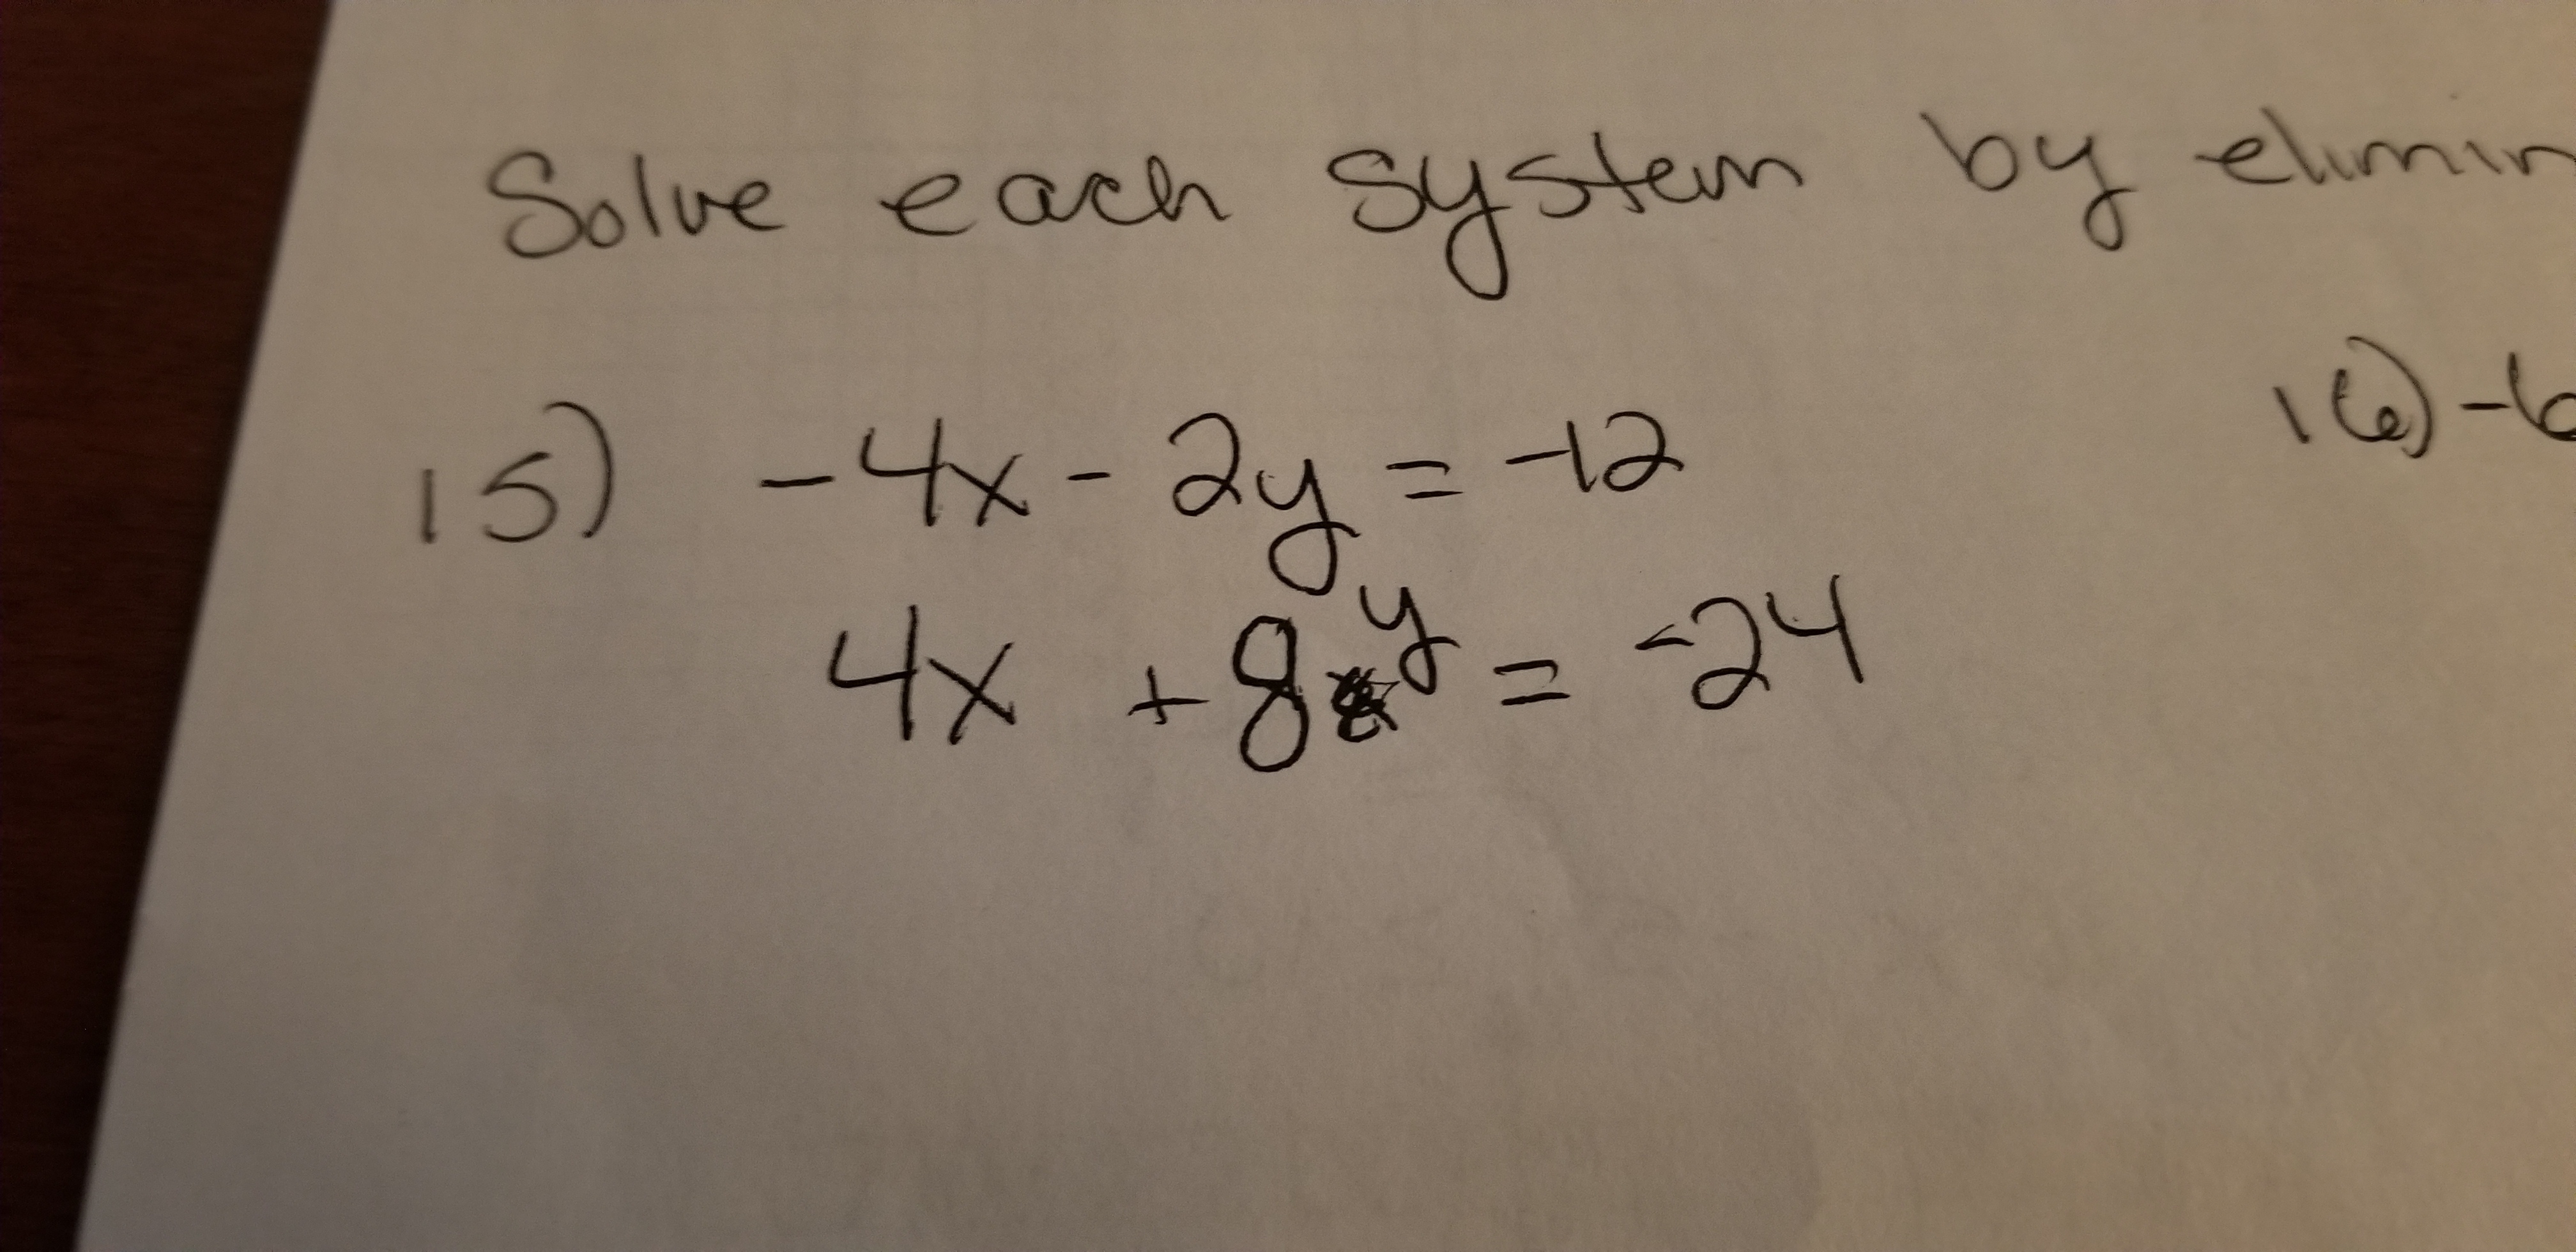 Solve each system by elimin
15) -4x - 2y = -12
16) -6
4x + 8y = -24